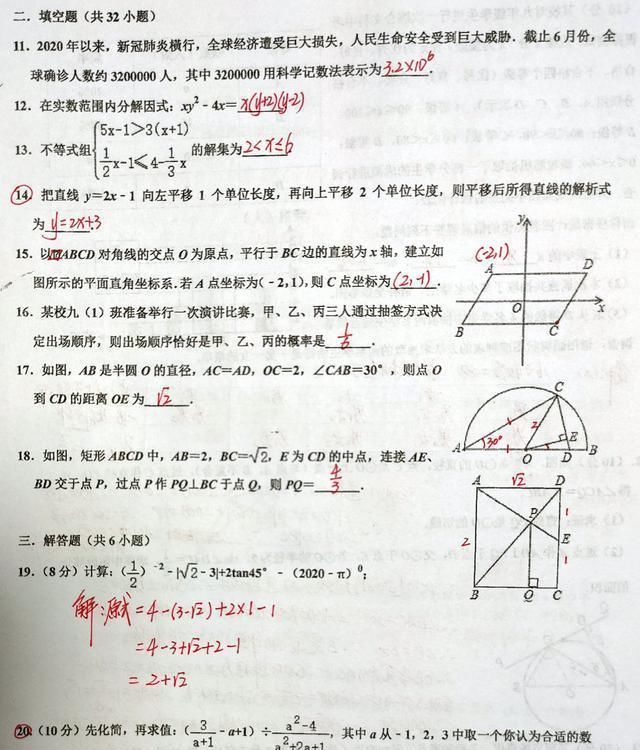 二. 填空题（共 32 小题）
11. 2020 年以来，新冠肺炎横行，全球经济遭受巨大损失，人民生命安全受到巨大威胁. 截止 6 月份，全
球确诊人数约 3200000 人，其中 3200000 用科学记数法表示为 3.2×10⁶ .
12. 在实数范围内分解因式：xy²﹣4x= x(y+2)(y-2)
13. 不等式组{5x-1＞3(x+1) 1/2x-1≤4-1/3x 的解集为 2<x≤6
14. 把直线 y=2x﹣1 向左平移 1 个单位长度，再向上平移 2 个单位长度，则平移后所得直线的解析式
为 y=2x+3
15. 以▱ABCD 对角线的交点 O 为原点，平行于 BC 边的直线为 x 轴，建立如
图所示的平面直角坐标系. 若 A 点坐标为(﹣2,1), 则 C 点坐标为 (2,-1) .
y
(-2,1)
A D
O x
B C
16. 某校九（1）班准备举行一次演讲比赛，甲、乙、丙三人通过抽签方式决
定出场顺序，则出场顺序恰好是甲、乙、丙的概率是 1/6 .
17. 如图，AB 是半圆 O 的直径，AC=AD，OC=2，∠CAB=30°，则点 O
到 CD 的距离 OE 为 √2 .
C
2
E
A 30° O D B
18. 如图，矩形 ABCD 中，AB=2，BC=√2，E 为 CD 的中点，连接 AE、
BD 交于点 P，过点 P 作 PQ⊥BC 于点 Q，则 PQ= 4/3
√2
A D
P 1
2 E
1
B Q C
三. 解答题（共 6 小题）
19.（8 分）计算：(1/2)⁻²﹣|√2﹣3|+2tan45°﹣(2020﹣π)⁰;
解:原式=4-(3-√2)+2×1-1
=4-3+√2+2-1
=2+√2
20.（10 分）先化简，再求值：(3/a+1﹣a+1)÷a²-4/a²+2a+1，其中 a 从﹣1，2，3 中取一个你认为合适的数